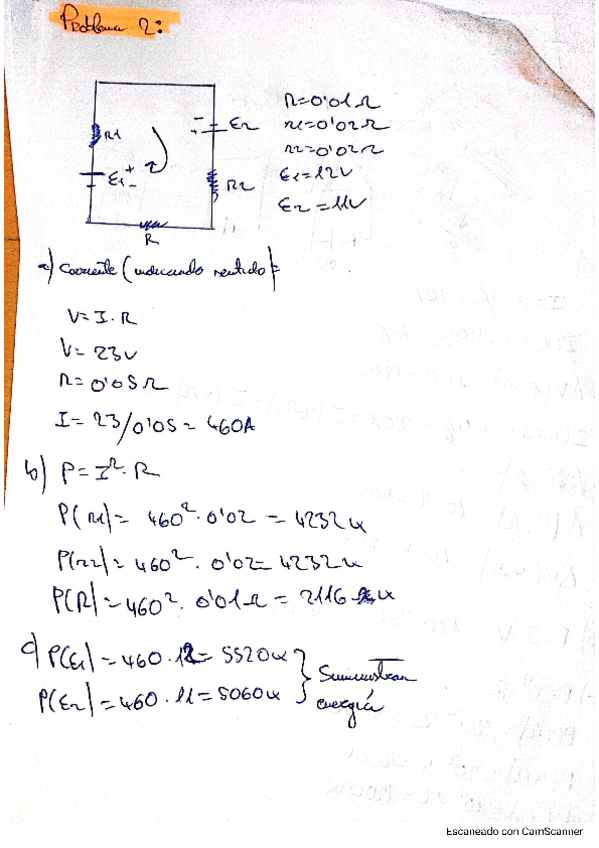 Problema 2:
R1
E1
+
-
-
+
E2
R2
R
R=0'01Ω
r1=0'02Ω
r2=0'02Ω
E1=12V
E2=11V
a) Corriente (indicando sentido)=
V=I·R
V=23V
R=0'05Ω
I=23/0'05=460A
b) P=I²·R
P(R1)=460²·0'02=4232w
P(r2)=460²·0'02=4232w
P(R)=460²·0'01Ω=2116w
c) P(E1)=460·12=5520w
P(E2)=460·11=5060w
Suministran
energía
Escaneado con CamScanner